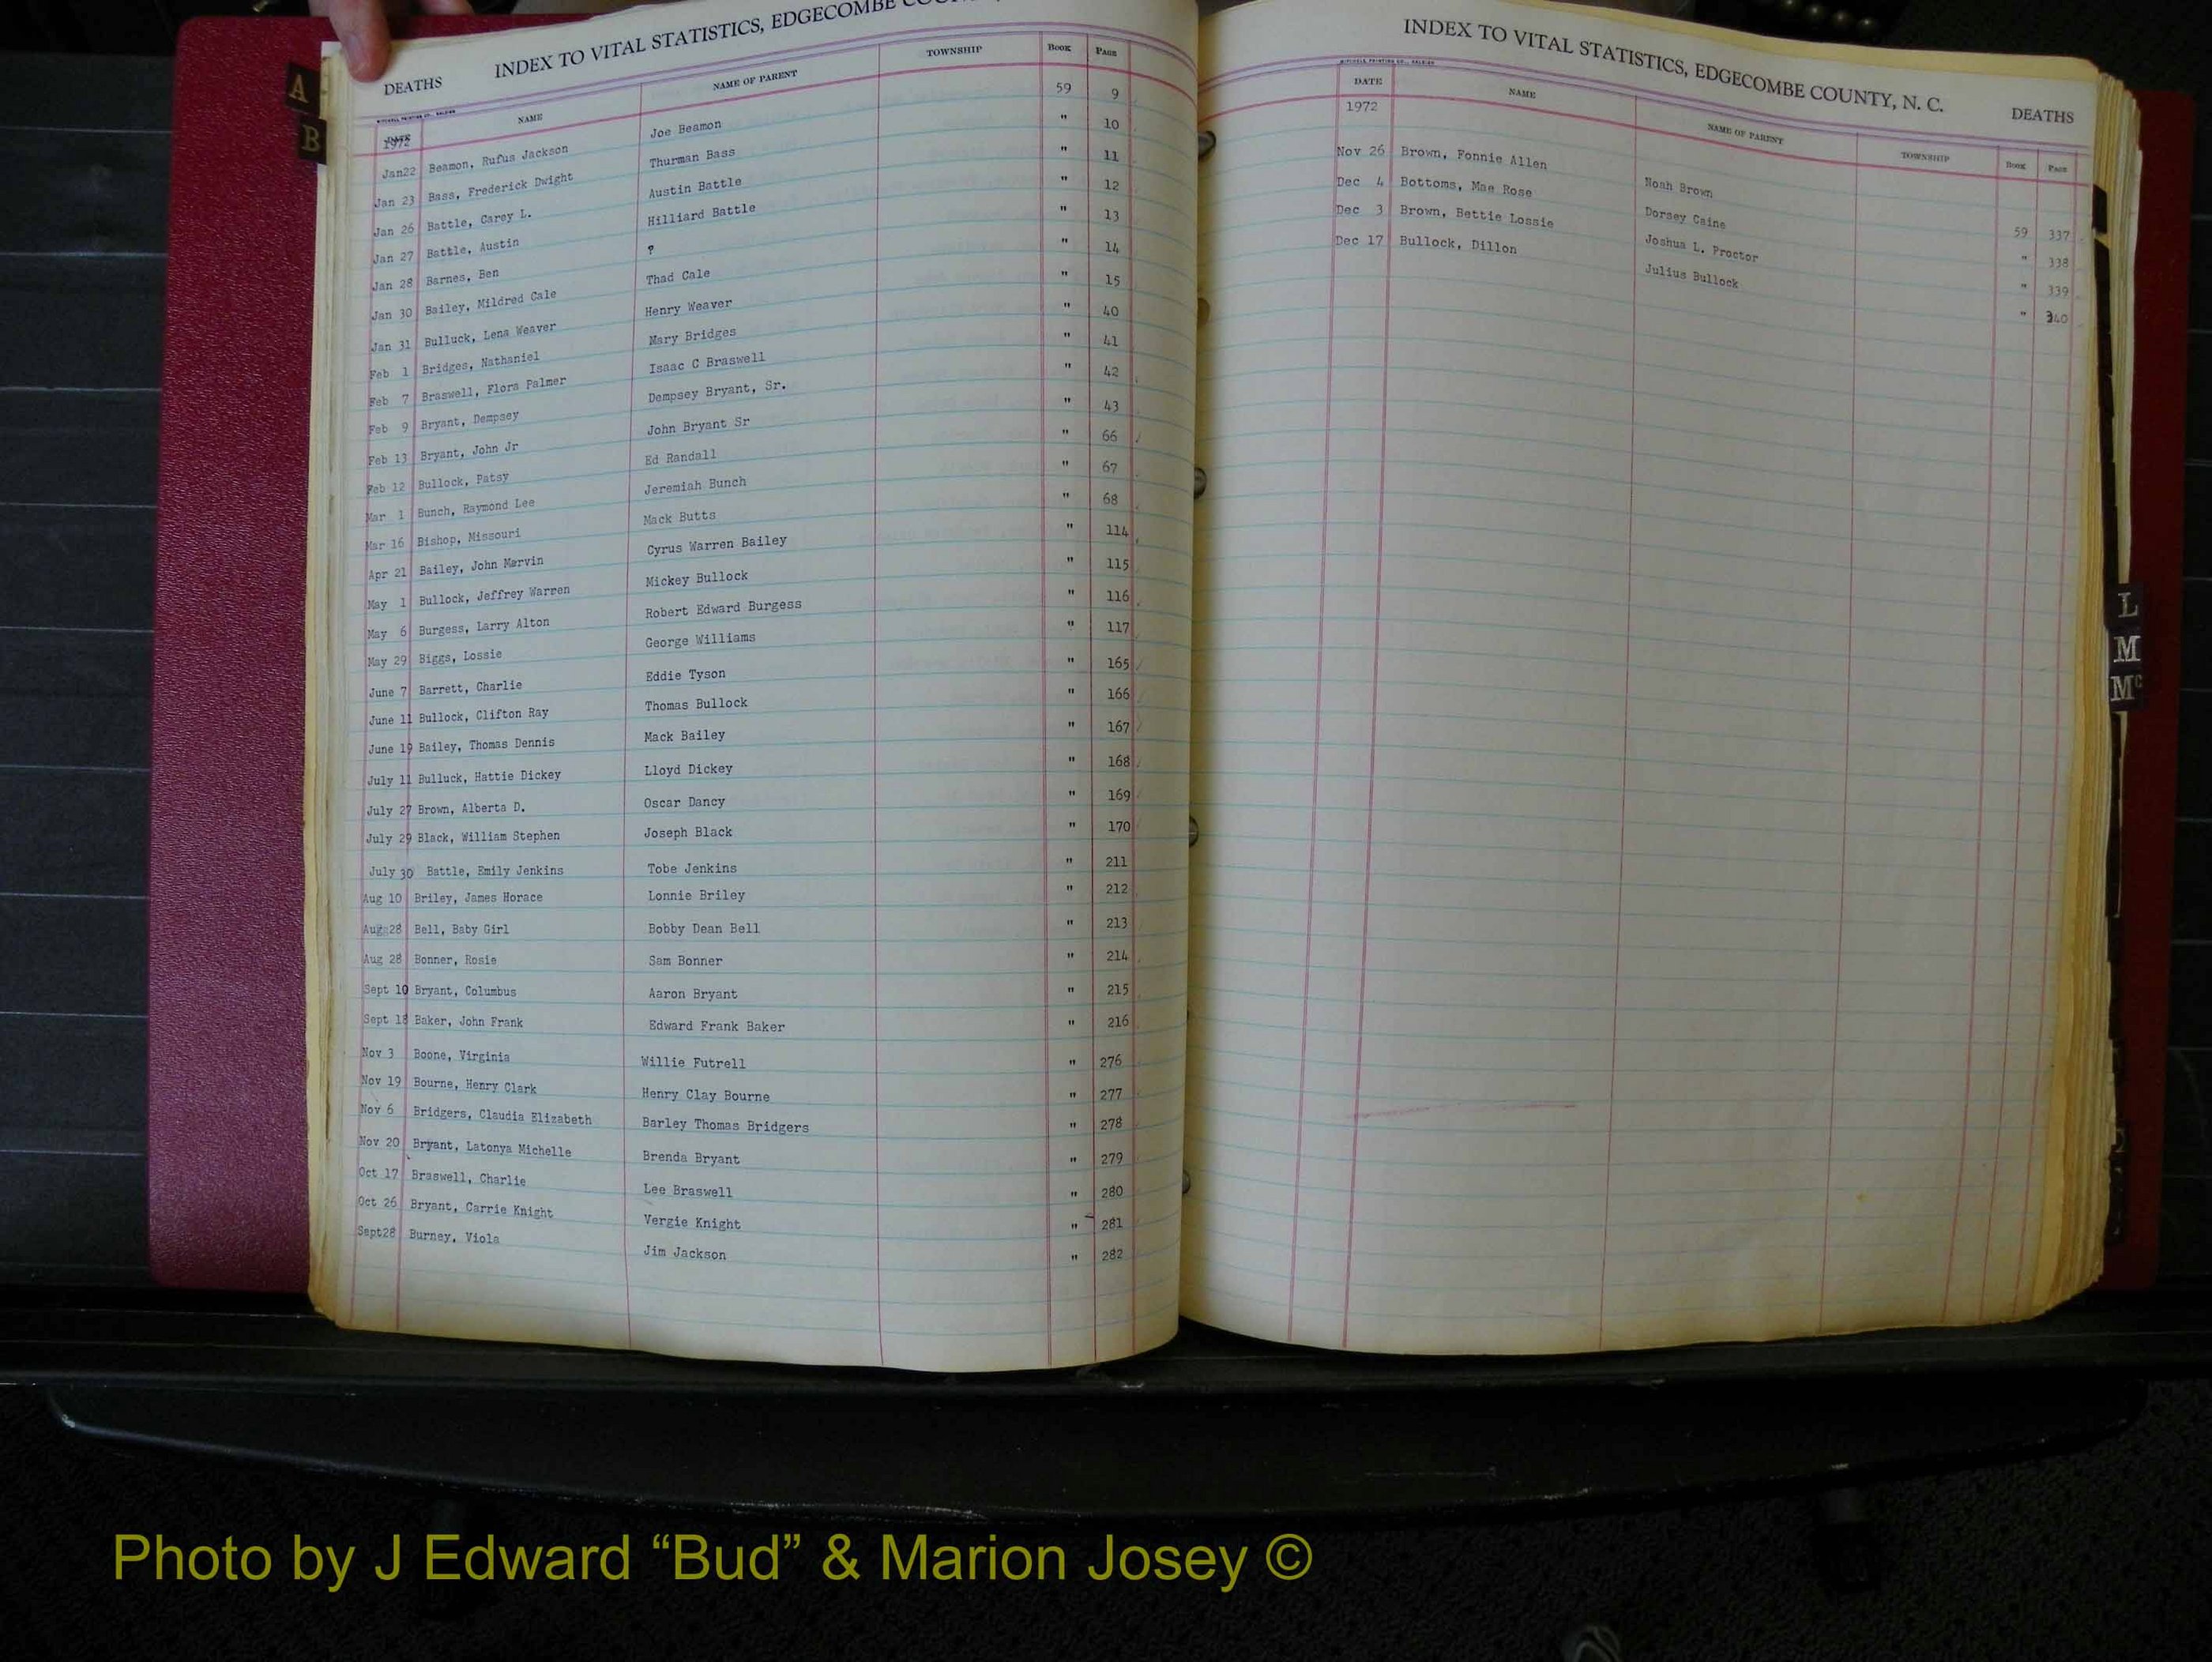 A
B
DEATHS INDEX TO VITAL STATISTICS, EDGECOMBE
DATE NAME NAME OF PARENT TOWNSHIP BOOK PAGE
1972
Jan22 Beamon, Rufus Jackson Joe Beamon 59 9
Jan 23 Bass, Frederick Dwight Thurman Bass " 10
Jan 26 Battle, Carey L. Austin Battle " 11
Jan 27 Battle, Austin Hilliard Battle " 12
Jan 28 Barnes, Ben ? " 13
Jan 30 Bailey, Mildred Cale Thad Cale " 14
Jan 31 Bulluck, Lena Weaver Henry Weaver " 15
Feb 1 Bridges, Nathaniel Mary Bridges " 40
Feb 7 Braswell, Flora Palmer Isaac C Braswell " 41
Feb 9 Bryant, Dempsey Dempsey Bryant, Sr. " 42
Feb 13 Bryant, John Jr John Bryant Sr " 43
Feb 12 Bullock, Patsy Ed Randall " 66
Mar 1 Bunch, Raymond Lee Jeremiah Bunch " 67
Mar 16 Bishop, Missouri Mack Butts " 68
Apr 21 Bailey, John Marvin Cyrus Warren Bailey " 114
May 1 Bullock, Jeffrey Warren Mickey Bullock " 115
May 6 Burgess, Larry Alton Robert Edward Burgess " 116
May 29 Biggs, Lossie George Williams " 117
June 7 Barrett, Charlie Eddie Tyson " 165
June 11 Bullock, Clifton Ray Thomas Bullock " 166
June 19 Bailey, Thomas Dennis Mack Bailey " 167
July 11 Bulluck, Hattie Dickey Lloyd Dickey " 168
July 27 Brown, Alberta D. Oscar Dancy " 169
July 29 Black, William Stephen Joseph Black " 170
July 30 Battle, Emily Jenkins Tobe Jenkins " 211
Aug 10 Briley, James Horace Lonnie Briley " 212
Aug 28 Bell, Baby Girl Bobby Dean Bell " 213
Aug 28 Bonner, Rosie Sam Bonner " 214
Sept 10 Bryant, Columbus Aaron Bryant " 215
Sept 18 Baker, John Frank Edward Frank Baker " 216
Nov 3 Boone, Virginia Willie Futrell " 276
Nov 19 Bourne, Henry Clark Henry Clay Bourne " 277
Nov 6 Bridgers, Claudia Elizabeth Barley Thomas Bridgers " 278
Nov 20 Bryant, Latonya Michelle Brenda Bryant " 279
Oct 17 Braswell, Charlie Lee Braswell " 280
Oct 26 Bryant, Carrie Knight Vergie Knight " 281
Sept28 Burney, Viola Jim Jackson " 282
INDEX TO VITAL STATISTICS, EDGECOMBE COUNTY, N. C. DEATHS
MITCHELL PRINTING CO., RALEIGH
DATE NAME NAME OF PARENT TOWNSHIP BOOK PAGE
1972
Nov 26 Brown, Fonnie Allen Noah Brown 59 337
Dec 4 Bottoms, Mae Rose Dorsey Caine " 338
Dec 3 Brown, Bettie Lossie Joshua L. Proctor " 339
Dec 17 Bullock, Dillon Julius Bullock " 340
L
M
Mc
Photo by J Edward “Bud” & Marion Josey ©